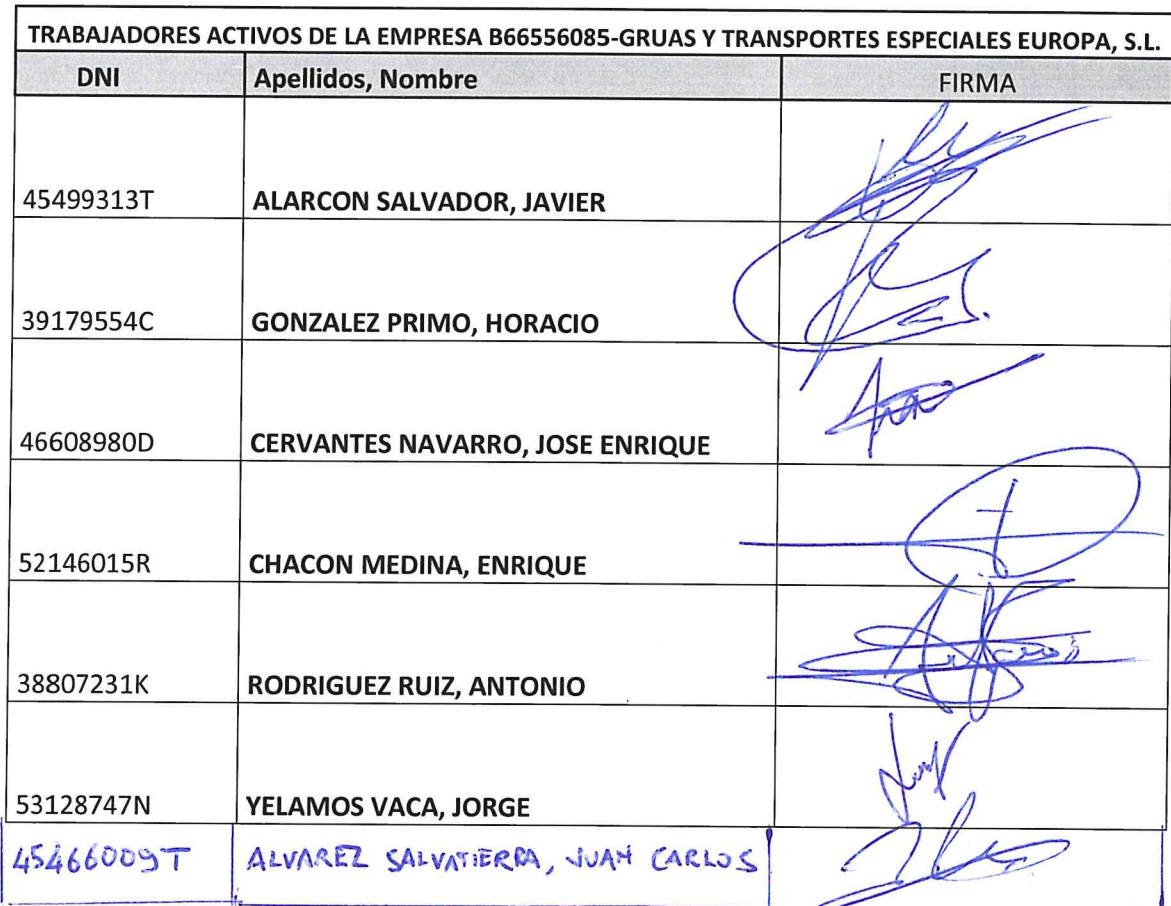 TRABAJADORES ACTIVOS DE LA EMPRESA B66556085-GRUAS Y TRANSPORTES ESPECIALES EUROPA, S.L.
DNI Apellidos, Nombre FIRMA
45499313T ALARCON SALVADOR, JAVIER
39179554C GONZALEZ PRIMO, HORACIO
46608980D CERVANTES NAVARRO, JOSE ENRIQUE
52146015R CHACON MEDINA, ENRIQUE
38807231K RODRIGUEZ RUIZ, ANTONIO
53128747N YELAMOS VACA, JORGE
45466009T ALVAREZ SALVATIERRA, JUAN CARLOS